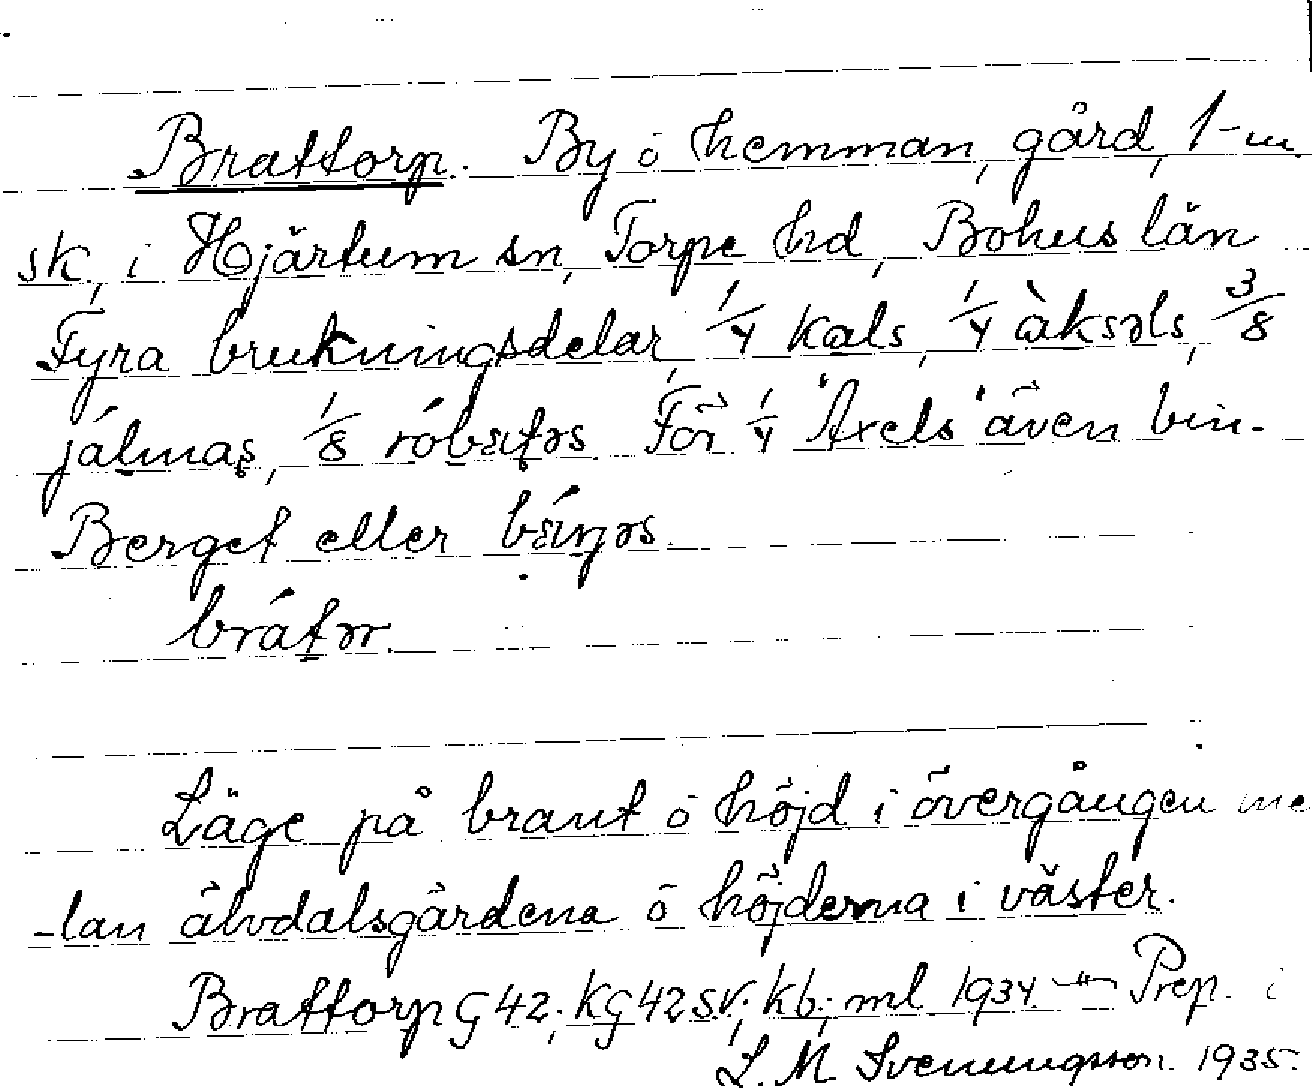 Brattorp. By ö hemman, gård, 1 m
sk, i Hjärtum sn, Torpe hd, Bohus län
Fyra brukningsdelar, 1/4 kals, 1/4 àksəls, 3/8
jálmaş, 1/8 róbəţəs. För 1/4 "Axels" även bin.
Berget eller bä́rjəs
brátər.
Läge på brant ö höjd i övergången me
-lan älvdalsgårdena ö höjderna i väster.
Brattorp G 42; KG 42 SV; kb; ml 1934 — " — Prep. i
L. M. Svenungsson. 1935.